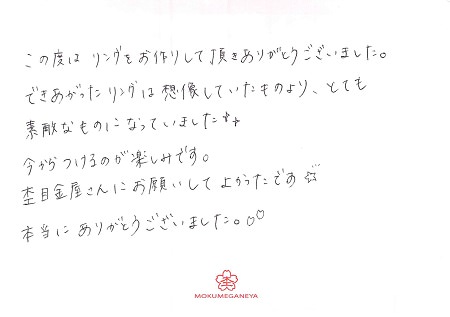 この度は リングをお作りして頂きありがとうございました。
できあがったリングは想像していたものより、とても
素敵なものになっていました♪♪
今からつけるのが楽しみです。
杢目金屋さんにお願いしてよかったです☆
本当にありがとうございました。♡♡
MOKUMEGANEYA